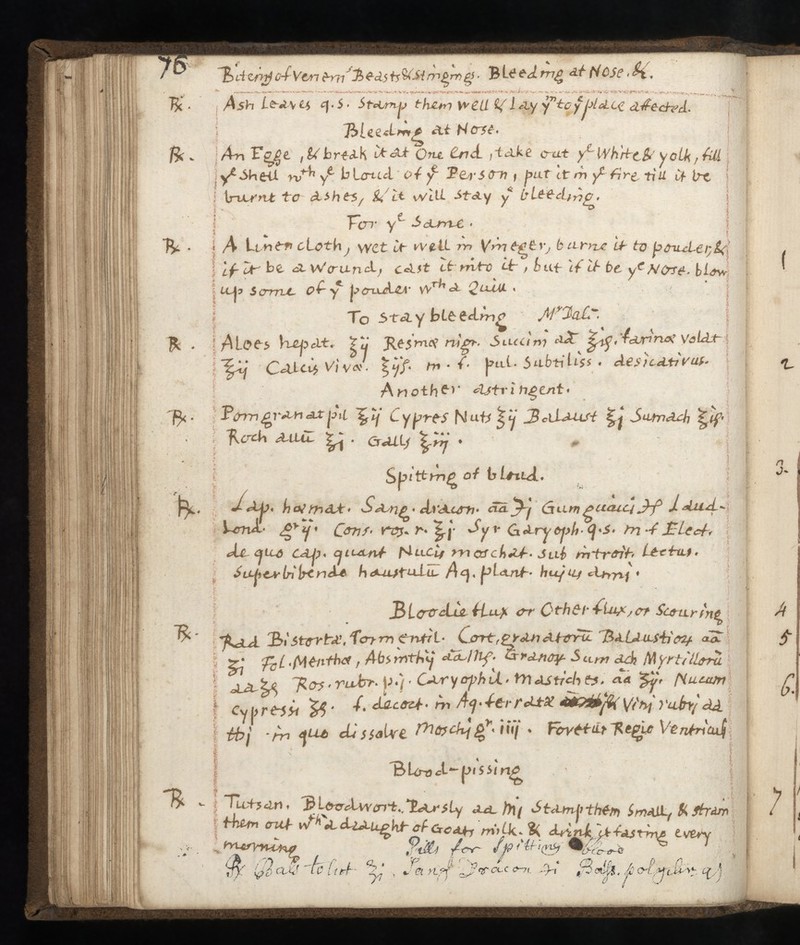 76
Biteing of Venem̄ Beasts & Stingings. Bleeding at Nose. &c.
℞. Ash Leaves q.s. Stamp them well & Lay yᵐ to yᵉ place affected.
Bleeding at Nose.
℞. An Egge, & break it at One End, take out yᵉ White & yolk, fill
yᵉ Shell wᵗʰ yᵉ bloud of yᵉ Person, put it in yᵉ fire till it be
burnt to ashes, & it will stay yᵉ bleeding.
For yᵉ Same.
℞. A Linen cloth, wet it well in Vineger, burne it to pouder, &
if it be a Wound, cast it into it, but if it be yᵉ Nose. blow
up some of yᵉ pouder wᵗʰ a Quill.
To Stay bleeding Mʳ Dalᵗ.
℞. Aloes hepat. ℥ij Resinæ nigr. Succini aā ℥iß. farinæ volat
℥ij Calcis Vivæ. ℥ijß. m. f. pul. Subtiliss. desicativus.
Another astringent.
℞. Pomgranat pil ℥ij Cypres Nuts ℥ij Balaust ℥j Sumach ℥iß.
Roch allū ℥j. Galls ℥iij.
Spitting of bloud.
℞. Lap. hæmat. Sang. dracon. aā ℈j Gum guaici ℈ß Laud-
Lond. gr ij. Cons. ros. r. ℥j Syr Garyoph. q.s. m f Elect.
de quo cap. quant Nucis moschat. sub introit. Lectus.
Superbibende haustulū Aq. plant. hujus anni.
Bloodie flux or Other flux, or Scouring
℞. Rad Bistortæ, Tormentil. Cort, granatorū Balaustioꝝ aā
℥j Fol. Menthæ, Absinthij aā Mß. Granoꝝ Sumach Myrtillorū
aā ℥ß Ros. rubr. p.j. Caryophil. mastiches. aa ʒij. Nucum
cypressi ℥ß. f. decoct. in Aq. ferratæ & Vini rubri aā
℔j in quo dissolve Moschi gʳ. iiij. Fovetur Regio Ventriculi
Blood-pissing
℞. Tutsan. Bloodwort. Parsly aa Mj Stamp them Small, & strain
them out wᵗʰ a draught of Goats milk. & drink it fasting every
morning
Pills for Spitting blood
℞ Bals tolut ℥j. Sang Dracon ʒi Bals. polychr. qs
1
2
3.
4
5
6.
7